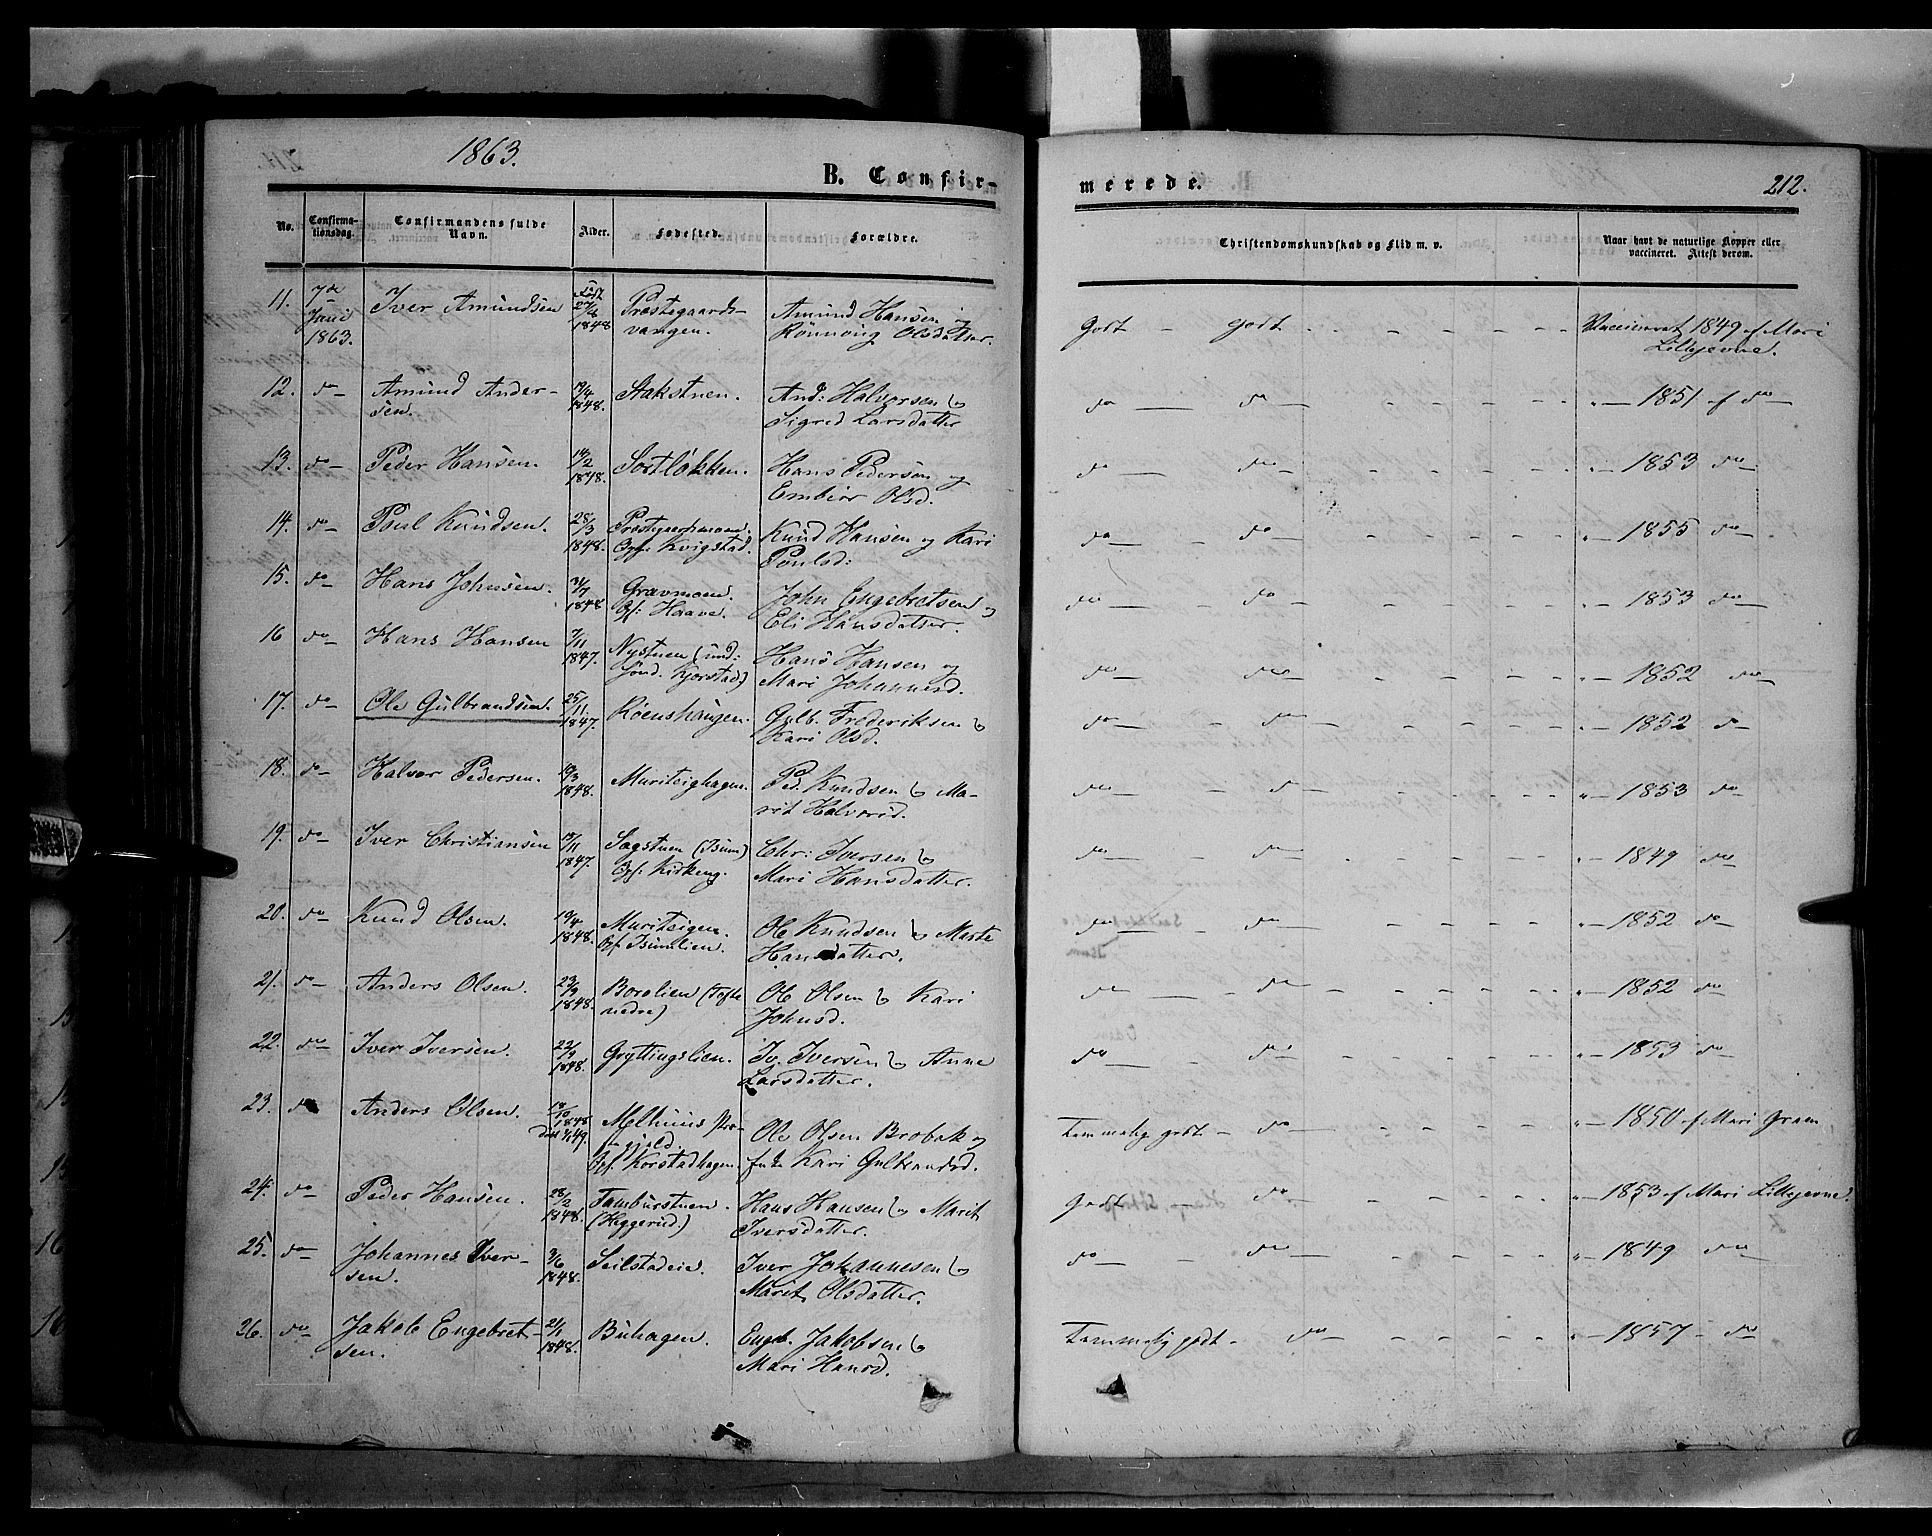 1863.
B. Confir-
merede.
212.
No.
Confirma-
tionsdag.
Confirmandens fulde
Navn.
Alder.
Fødested.
Forældre.
Christendomskundskab og Flid m. v.
Naar havt de naturlige Kopper eller
vaccineret. Attest derom.
11. 7de Juni 1863. Iver Amundsen født 27/4 1848 Præstegaards-
vangen. Amund Hansen
Rønnoug Olsdatter.
Godt - godt - - - Vaccineret 1849 af Mari
Lillejevne.
12. do Amund Ander-
sen. 19/4 1848. Stakstuen. And: Halvorsen og
Sigrid Larsdatter
do do 1851 af do
13. do Peder Hansen. 14/2 1848. Sortløkken. Hans Pedersen og
Embior Olsd.
do do 1853 do
14. do Poul Knudsen. 28/3 1848. Opf. Kvigstad. Knud Hansen og Kari
Poulsd:
do do 1855 do
15. do Hans Johnsen. 31/7 1848 Gravmoen.
Opf: Haave. John Engebretsen og
Eli Hansdatter.
do do 1853 do
16 do Hans Hansen 7/11 1847. Nystuen (und:
Sønd. Kjorstad) Hans Hansen og
Mari Johannesd.
do do 1852 do
17. do Ole Gulbrandsen. 25/11 1847. Røenshaugen. Gulb. Frederiksen og
Kari Olsd.
do do 1852 do
18. do Halvor Pedersen. 1848. Muriteighagen. Ped. Knudsen og Ma-
rit Halvorsd.
do do 1853 do
19. do Iver Christiansen 19/11 1847. Sagstuen (Isum)
Opf: Kirkeng. Chr: Iversen og
Mari Hansdatter.
do do 1849 do
20. do Knud Olsen. 19/4 1848. Muriteigen.
Opf. Isumlien. Ole Knudsen og Marte
Hansdatter.
do do 1852 do
21. do Anders Olsen. 23/9 1848. Borolien (Tofte
nedre) Ole Olsen og Kari
Johnsd.
do do 1852 do
22. do Iver Iversen. 22/9 1848. Gryttingslien. Iv. Iversen og Anne
Larsdatter.
do do 1853 do
23. do Anders Olsen. 18/10 1848 Melhuus Præ-
stegjeld.
Opf. Korstadhagen. Ole Olsen Brobak og
Kari Gulbrandsd.
Temmelig godt - do 1850 af Mari Gram
24. do Peder Hansen. 28/2 1848. Tamburstuen.
(Heggerud.) Hans Hansen og Marit
Iversdatter.
Godt do 1853 af Mari Lillejevne.
25. do Johannes Iver-
sen. 3/6 1848. Seilstadeie. Iver Johannesen og
Marit Olsdatter.
do do 1849 do
26. do Jakob Engebret-
sen. 21/1 1848. Buhagen. Engeb. Jakobsen og
Mari Hansd.
Temmelig godt - do 1857 - do